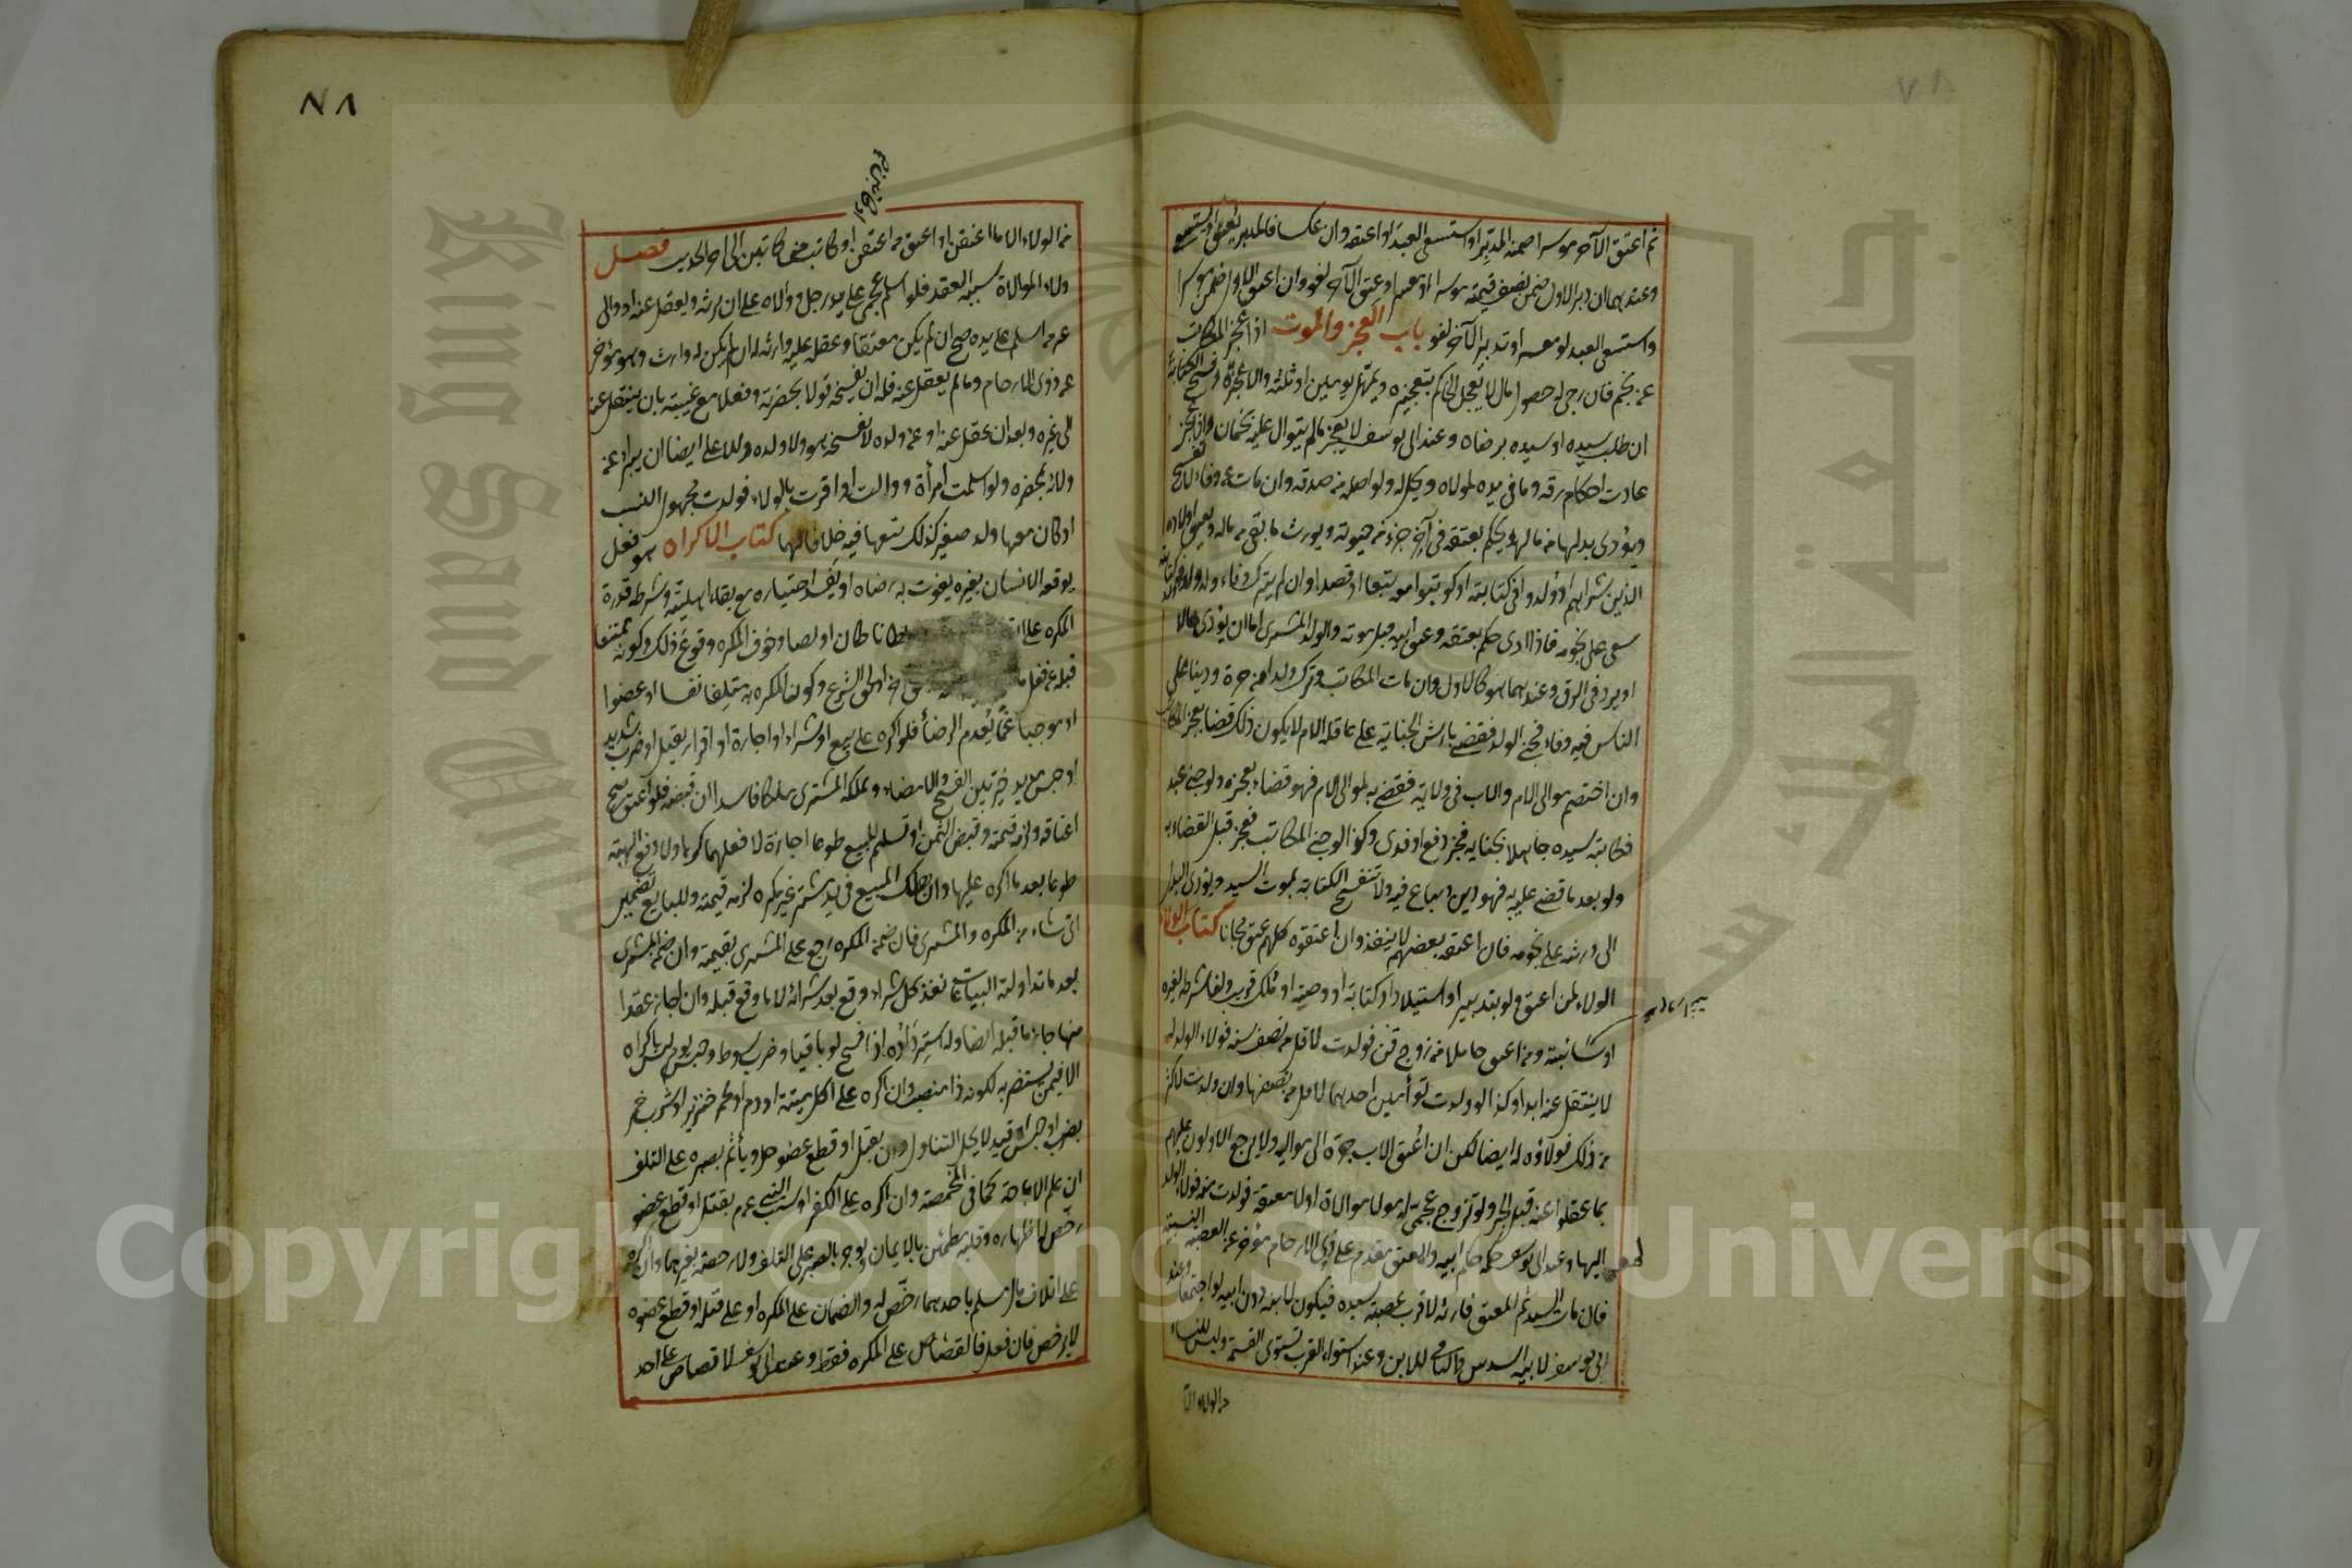 ثم اعتق الآخر موسرا ضمنه المدبر او استسعى العبد او اعتقه وان عكسا فالمدبر يعتق او يستسعى
وعندهما ان دبر الاول ضمن نصف قيمته موسرا او معسرا وعتق الآخر لغو وان اعتق الاول ضمن موسرا
واستسعى العبد لو معسرا وتدبير الآخر لغو باب العجز والموت اذا عجز المكاتب
عن نجم فان رجى له حصول مال لا يعجل الحاكم بتعجيزه ويمهل يومين او ثلثة والا عجزه وفسخ الكتابة
ان طلب سيده او سيده برضاه وعند ابى يوسف لا يعجز ما لم يتوال عليه نجمان واذا عجز
عادت احكام رقه وما فى يده لمولاه ويحل له ولو اصله من صدقة وان مات عن وفاء لا تفسخ
ويؤدى بدلها من ماله ويحكم بعتقه فى آخر جزء من حيوته ويورث ما بقى من ماله ويعتق اولاده
الذين شراهم او ولدوا فى كتابته او كوتبوا معه تبعا او قصدا وان لم يترك وفاء وله ولد ولد فى كتابته
سعى على نجومه فاذا ادى حكم بعتقه وعتق ابيه قبل موته والولد المشترى اما ان يؤدى حالا
او يرد فى الرق وعندهما هو كالاول وان مات المكاتب وترك ولدا من حرة ودينا على
الناس فيه وفاء فجنى الولد فقضى بارش الجناية على عاقلة الام لا يكون ذلك قضاء بعجز المكاتب
وان اختصم موالى الام والاب فى ولايه فقضى به لموالى الام فهو قضاء بعجزه ولو جنى عبد
فكاتبه سيده جاهلا بجنايه فعجز دفع او فدى وكذا لو جنى المكاتب فعجز قبل القضاء به
ولو بعد ما قضى عليه به فهو دين يباع فيه ولا تنفسخ الكتابة بموت السيد ويؤدى البدل
الى ورثته على نجومه فان اعتقه بعضهم لا ينفذ وان اعتقوه كلهم عتق مجانا كتاب الولاء
الولاء لمن اعتق ولو بتدبير او استيلاد او كتابة او وصية او ملك قريب ولغا شرطه لغيره
او سائبة ومن اعتق حاملا من زوج قن فولدت لاقل من نصف سنة فولاء الولد له
لا ينتقل عنه ابدا وكذا لو ولدت توأمين احدهما لاقل من نصفها وان ولدت لاكثر
من ذلك فولاؤه له ايضا لكن ان اعتق الاب جره الى مواليه ولا يرجع الاولون عليهم
بما عقلوا عنه قبل الجر ولو تزوج عجمى له مولى موالاة او لا معتقة فولدت منه فولاء الولد
لمواليها وعند ابى يوسف حكمه حكم ابيه والمعتق مقدم على ذوى الارحام مؤخر عن العصبة النسبية
فان مات السيد ثم المعتق فارثه لاقرب عصبة سيده فيكون لابنه دون ابيه لو اجتمعا وعند
ابى يوسف لابيه السدس والباقى للابن وعند استواء القرب تستوى القسمة وليس للنساء
من الولاء الا
من الولاء الا ما اعتقن او اعتق من اعتقن او كاتبن من كاتبن الى آخر الحديث فصل
ولاء الموالاة سببه العقد فلو اسلم عجمى على يد رجل ووالاه على ان يرثه ويعقل عنه او والى
غير من اسلم على يده صح ان لم يكن معتقا وعقله عليه وارثه له ان لم يكن له وارث وهو مؤخر
عن ذوى الارحام وما لم يعقل عنه فله ان يفسخه قولا بحضرته وفعلا مع غيبته بان ينتقل عنه
الى غيره وبعد ان عقل عنه او عن ولده لا يفسخه هو ولا ولده وللاعلى ايضا ان يبرأ عن
ولائه بحضره ولو اسلمت امرأة ووالت او اقرت بالولاء فولدت مجهول النسب
او كان معها ولد صغير كذلك تبعها فيه خلافا لهما كتاب الاكراه هو فعل
يوقعه الانسان بغيره يفوت به رضاه او يفسد اختياره مع بقاء اهليته وشرطه قدرة
المكره على سلطانا كان او لصا وخوف المكره وقوع ذلك وكونه ممتنعا
قبله عن فعل او لحق الشرع وكون المكره به متلفا نفسا او عضوا
او موجبا غما يعدم الرضا فلو اكره على بيع او شراء او اجارة او اقرار بقتل او ضرب شديد
او حبس مديد خير بين الفسخ والامضاء ويملكه المشترى ملكا فاسدا ان قبضه فلو اعتق صح
اعتاقه ولزمه قيمته وقبض الثمن او تسليم المبيع طوعا اجازة لا فعلهما كرها ولا دفع الهبة
طوعا بعد ما اكره عليها وان هلك المبيع فى يد مشتر غير مكره لزمه قيمته وللبايع تضمين
اى شاء من المكره والمشترى فان ضمن المكره رجع على المشترى بقيمته وان ضمن المشترى
بعد ما تداولته البياعات نفذ كل شراء وقع بعد شرائه لا ما وقع قبله وان اجاز عقدا
منها جاز ما قبله ايضا وله استرداده اذا فسخ لو باقيا وضرب سوط وحبس يوم ليس باكراه
الا فيمن يستضر به لكونه ذا منصب وان اكره على اكل ميتة او دم او لحم خنزير او شرب خمر
بضرب او حبس او قيد لا يحل التناول وان بقتل او قطع عضو حل ويأثم بصبره على التلف
ان علم الاباحة كما فى المخمصة وان اكره على الكفر او سب النبى عم بقتل او قطع عضو
رخص له اظهاره وقلبه مطمئن بالايمان ويوجر بالصبر على التلف ولا رخصة بغيرهما وان اكره
على اتلاف مال مسلم باحدهما رخص له والضمان على المكره او على قتله او قطع عضوه
لا يرخص فان فعل فالقصاص على المكره فقط وعند ابى يوسف لا قصاص على احد
٧٨
Copyright © King Saud University
King Saud University
جامعة الملك سعود